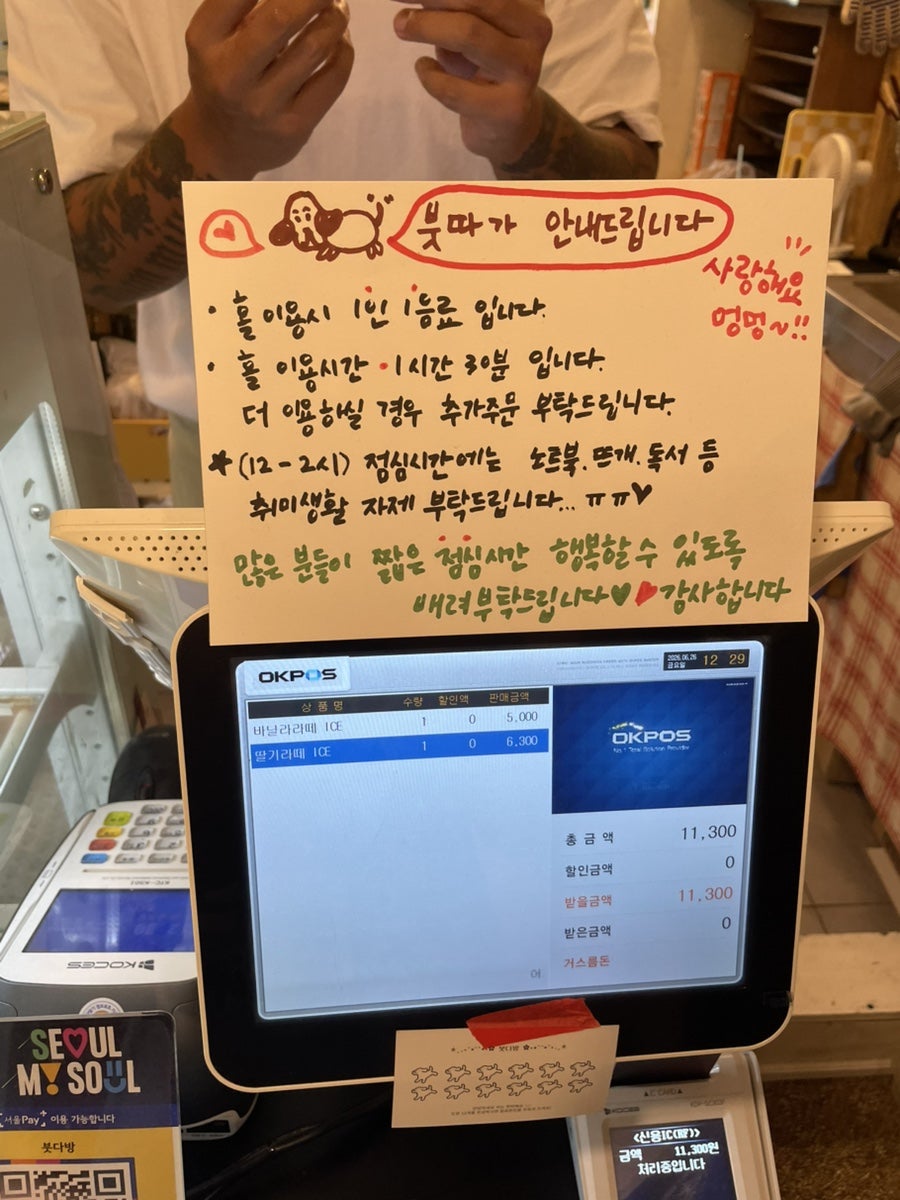 붓따가 안내드립니다
사랑해요
멍멍~!!
· 홀 이용시 1인 1음료 입니다.
· 홀 이용시간 1시간 30분 입니다.
더 이용하실 경우 추가주문 부탁드립니다.
★(12-2시) 점심시간에는 노트북.뜨개.독서 등
취미생활 자제 부탁드립니다...ㅠㅠ♥
많은 분들이 짧은 점심시간 행복할 수 있도록
배려부탁드립니다♥♥감사합니다
OKPOS
2026.06.26
금요일
12 29
상 품 명 수량 할인액 판매금액
바닐라라떼 ICE 1 0 5,000
딸기라떼 ICE 1 0 6,300
OKPOS
No.1 Total Solution Provider
총 금 액 11,300
할인금액 0
받을금액 11,300
받은금액 0
거스름돈
KOCES
SEOUL
MY SOUL
서울Pay+ 이용 가능합니다
붓다방
붓다방
IC CARD
KOCES
<신용IC(RF)>
금액 11,300원
처리중입니다